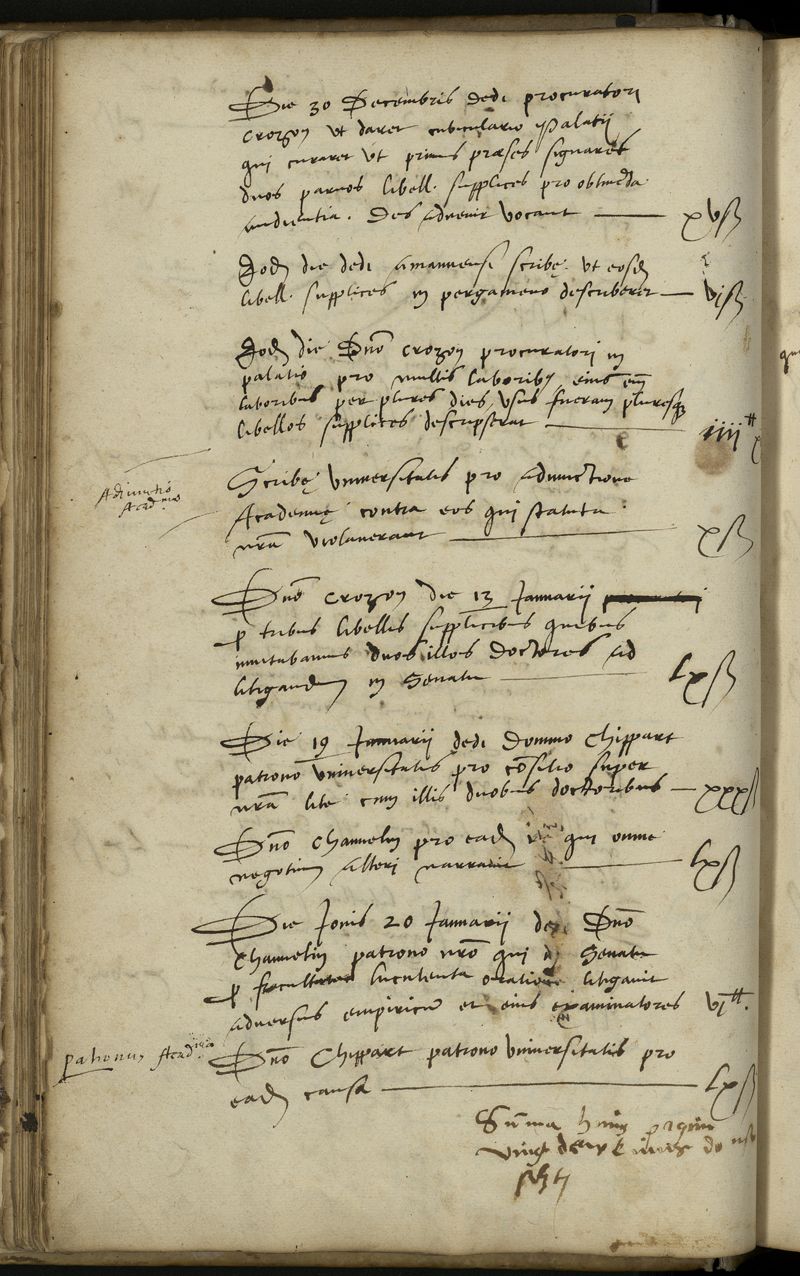 Die 30 Decembris dedi procuratori
Crozon ut daret cubiculario Palatii
qui curaret ut primus præses signaret
duos paruos libell. supplices pro obtinēda
audientia. des aduenir vocant xvß
Eodē die dedi amanuensi scribę. ut eosdē
libell. supplices in pergameno describeret vjß
Eodē die Dno Crozon procuratori in
palatio pro multis laboribus eius em̄
laboribus per plures dies usus fueram pluresq̃
libellos supplices descripserat iiij tt
Scribę Vniuersitatis pro adiunctione
Academię contra eos qui statuta
nrā violauerant xß
Adiunctio
Academ
Dno Crozon die 13 Januarii
p tribus libellis supplicibus quibus
inuitabamus duos illos doctores ad
litigandū in Senatu lxß
Die 19 Januarii dedi domino Chippart
patrono Vniuersitatis pro cōsilio super
nrā lite cum illis duobus doctoribus xxxß
Dno Chauuelin pro eadē re qui omne
negotium alteri narrauit lxß
Die Jouis 20 Januarii dedi Dno
Chauuelin patrono nrō qui in Senatu
p facultate luculenta oratione litigauit
aduersus empiricū et eius examinatores vj tt.
patronus Acad
Dno Chippart patrono Vniuersitatis pro
eadē causa lxß
Summa huius paginę
vingt deux